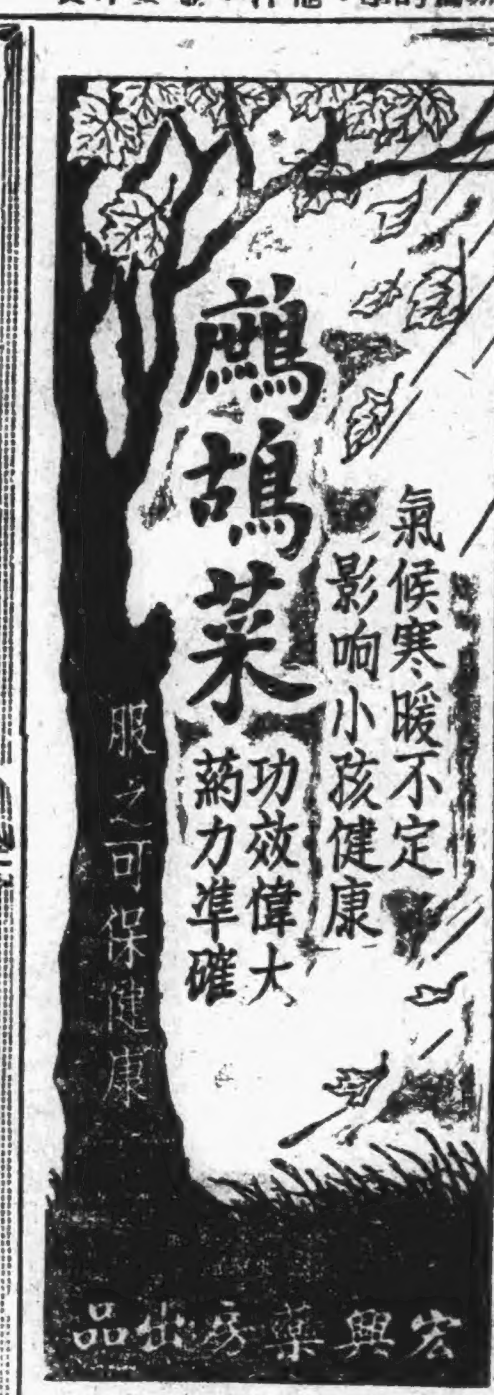 氣候寒暖不定
影响小孩健康
鷓鴣菜
功效偉大
葯力準確
服之可保健康
宏興葯房出品